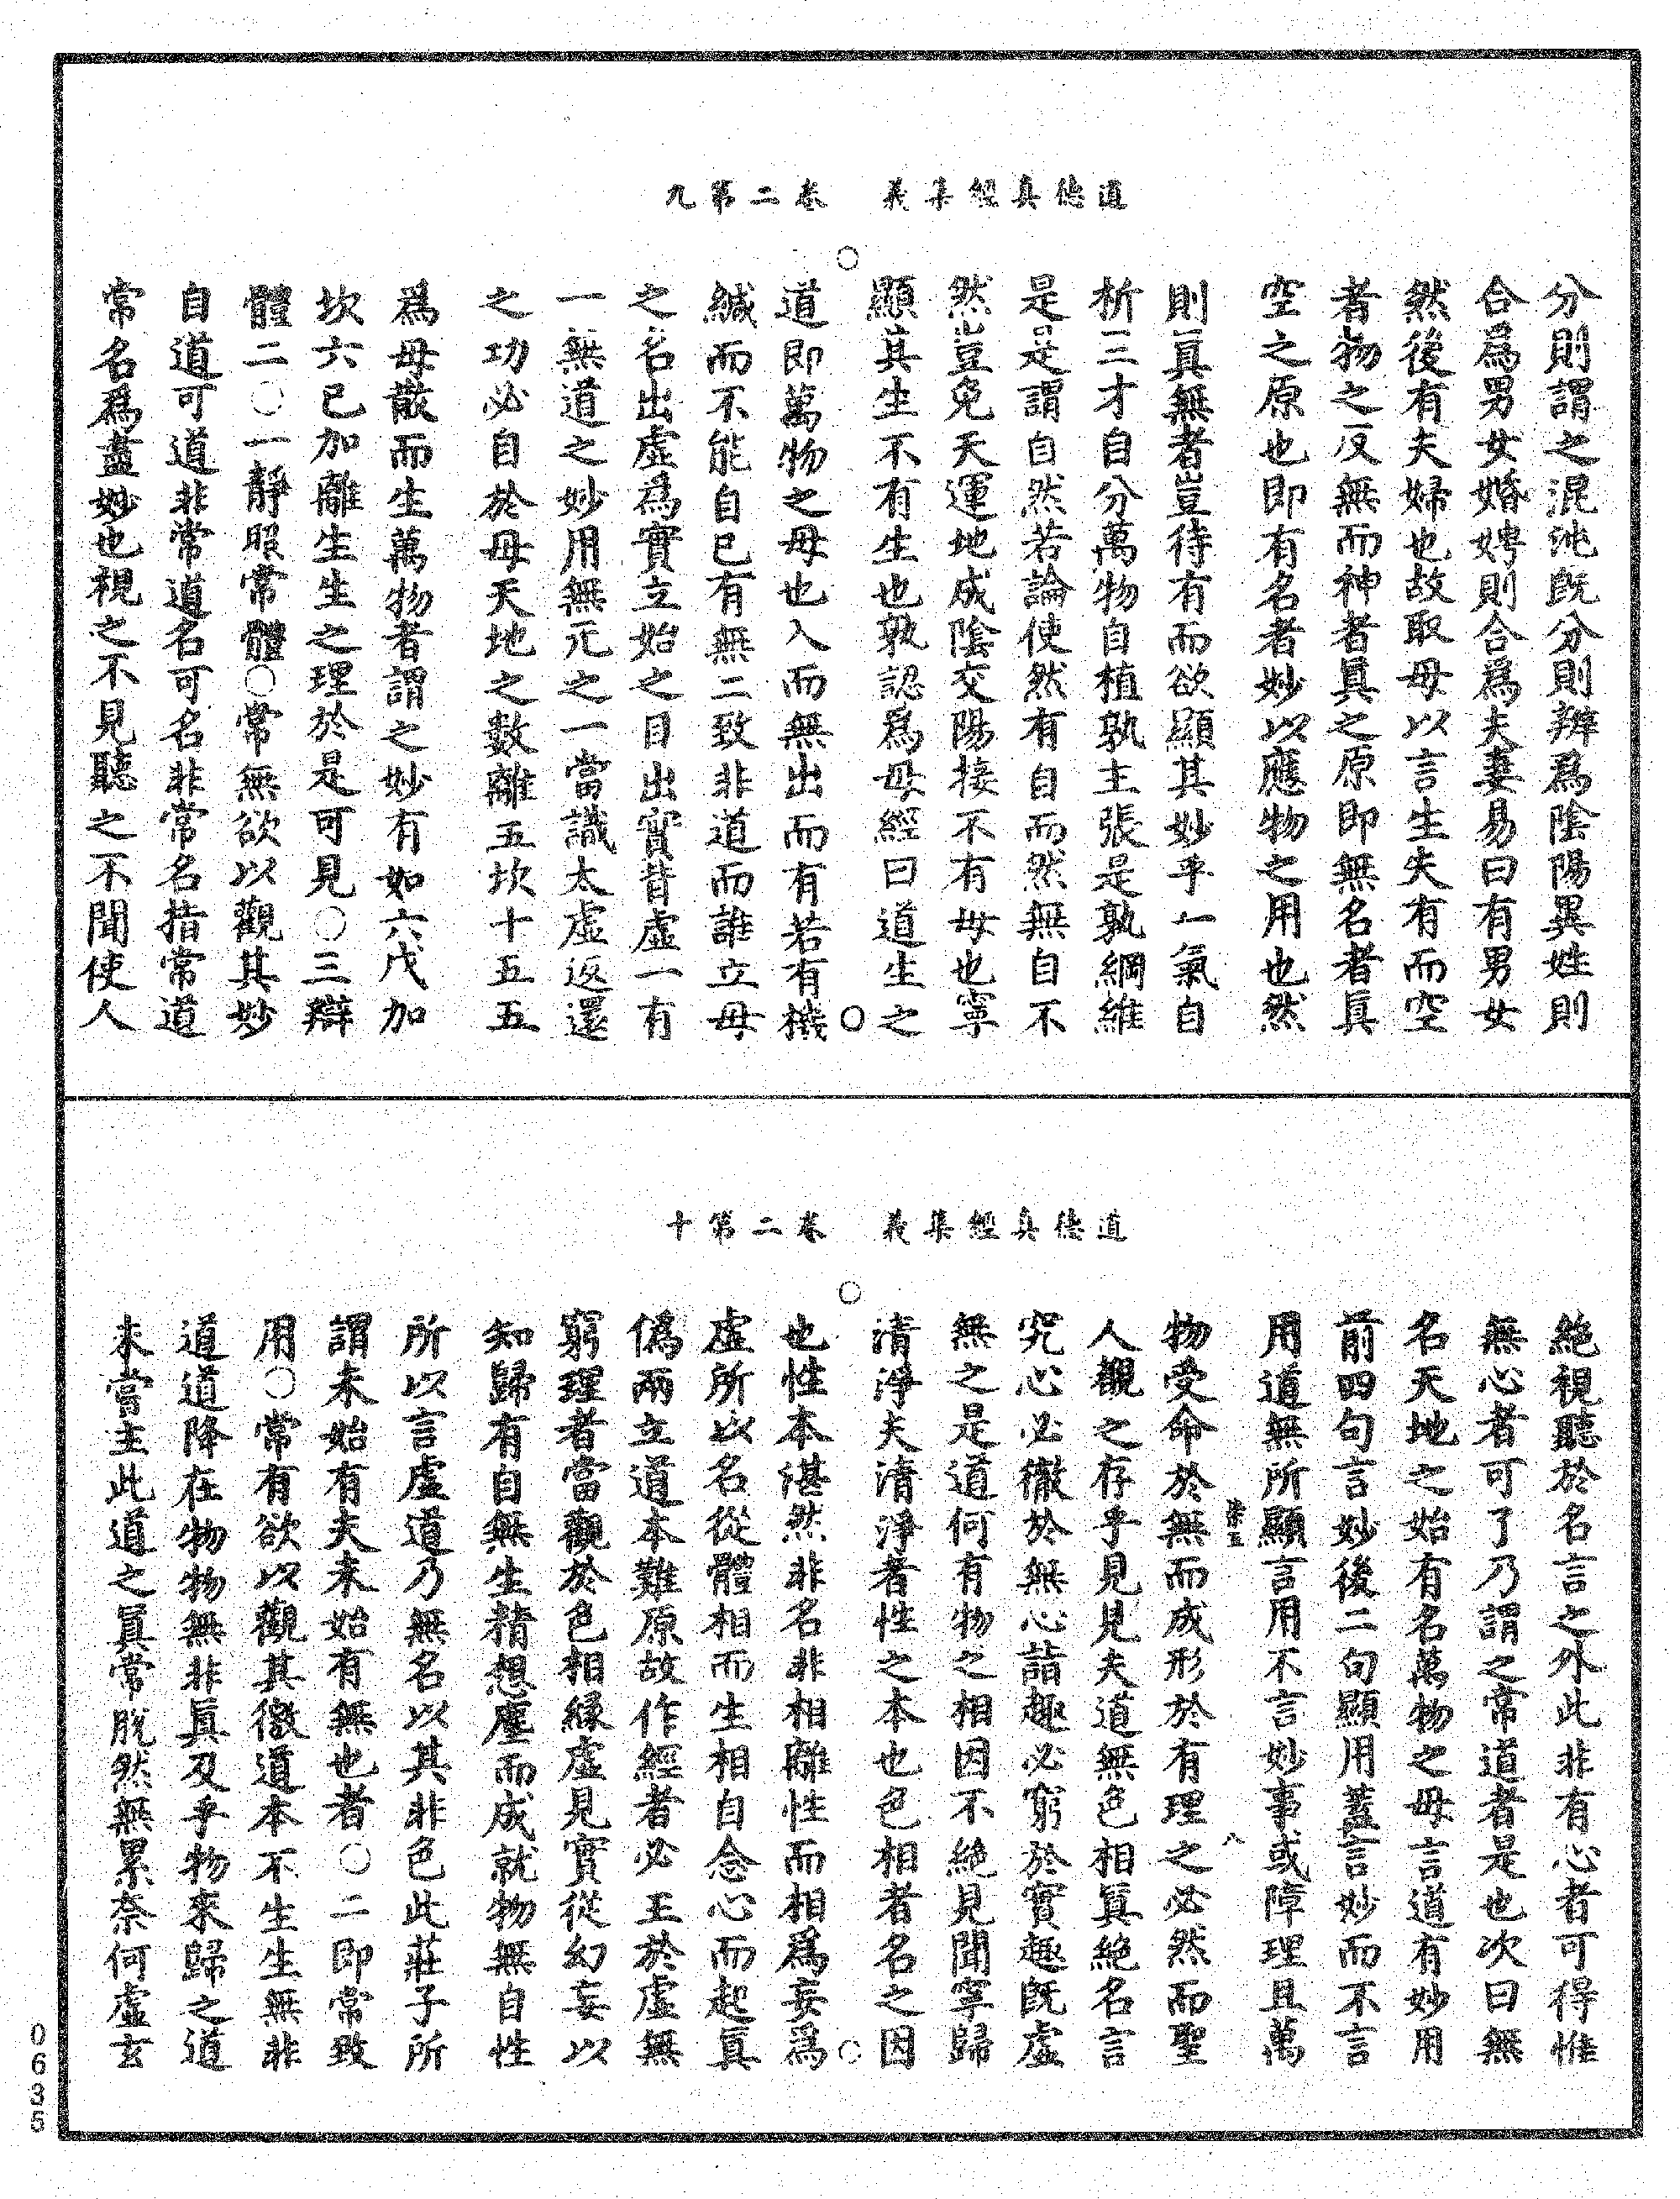 道德真經集義　卷二第九
分則謂之混沌既分則辨爲陰陽異姓則
合爲男女婚娉則合爲夫妻易曰有男女
然後有夫婦也故取母以言生失有而空
者物之反無而神者真之原即無名者真
空之原也即有名者妙以應物之用也然
則真無者豈待有而欲顯其妙乎一氣自
析三才自分萬物自植孰主張是孰綱維
是是謂自然若論使然有自而然無自不
然豈免天運地成陰交陽接不有母也寧
顯其生不有生也孰認爲母經曰道生之
○
○
道即萬物之母也入而無出而有若有機
緘而不能自已有無二致非道而誰立母
之名出虛爲實立始之目出實昔虛一有
一無道之妙用無元之一當識太虛返還
之功必自於母天地之數離五坎十五五
爲母散而生萬物者謂之妙有如六戊加
坎六已加離生生之理於是可見○三辯
體二○一靜照常體○常無欲以觀其妙
自道可道非常道名可名非常名指常道
常名爲盡妙也視之不見聽之不聞使人
道德真經集義　卷二第十
絕視聽於名言之外此非有心者可得惟
無心者可了乃謂之常道者是也次曰無
名天地之始有名萬物之母言道有妙用
前四句言妙後二句顯用蓋言妙而不言
用道無所顯言用不言妙事或障理且萬
八
物受命於無而成形於有理之必然而聖
人觀之存乎見見夫道無色相真絕名言
究心必徹於無心詣趣必窮於實趣既虛
無之是道何有物之相因不絕見聞寧歸
清淨夫清淨者性之本也色相者名之因
○
○
也性本湛然非名非相離性而相爲妄爲
虛所以名從體相而生相自念心而起真
僞兩立道本難原故作經者必王於虛無
窮理者當觀於色相緣虛見實從幻妄以
知歸有自無生精想塵而成就物無自性
所以言虛道乃無名以其非色此莊子所
謂未始有夫未始有無也者○二即常致
用○常有欲以觀其徼道本不生生無非
道道降在物物無非真及乎物來歸之道
未嘗主此道之真常脫然無累奈何虛玄
0635